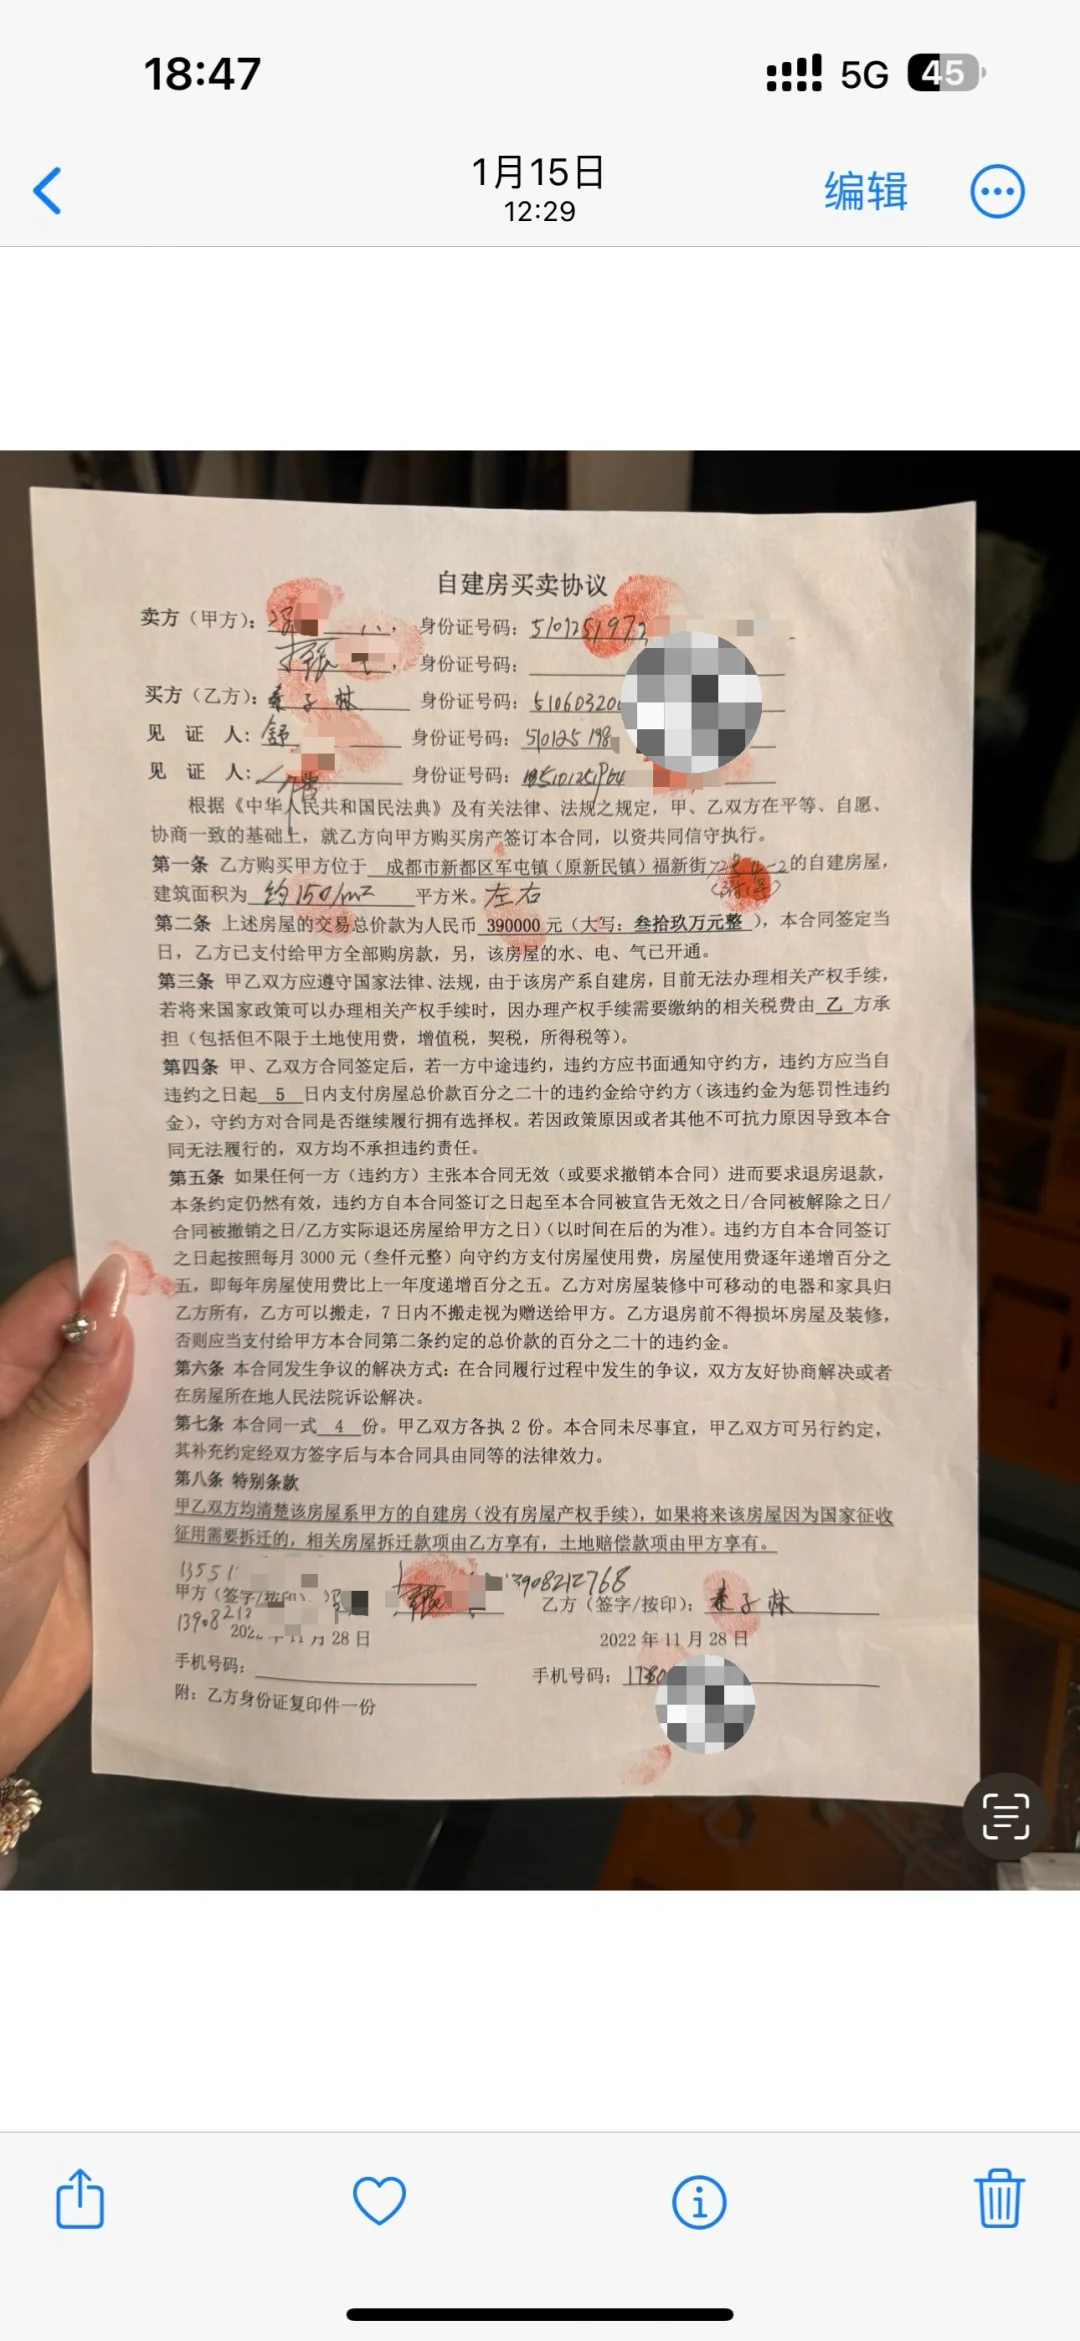 18:47
5G 45
1月15日
12:29
编辑
自建房买卖协议
卖方（甲方）： ， 身份证号码：5101251972
张 ， 身份证号码：
买方（乙方）： 子林 身份证号码：51060320
见 证 人：舒 身份证号码：510125198
见 证 人： 身份证号码：5101251964
根据《中华人民共和国民法典》及有关法律、法规之规定，甲、乙双方在平等、自愿、
协商一致的基础上，就乙方向甲方购买房产签订本合同，以资共同信守执行。
第一条 乙方购买甲方位于 成都市新都区军屯镇（原新民镇）福新街72 -2的自建房屋，
建筑面积为 约150/m² 平方米。左右
第二条 上述房屋的交易总价款为人民币 390000 元（大写：叁拾玖万元整），本合同签定当
日，乙方已支付给甲方全部购房款，另，该房屋的水、电、气已开通。
第三条 甲乙双方应遵守国家法律、法规，由于该房产系自建房，目前无法办理相关产权手续，
若将来国家政策可以办理相关产权手续时，因办理产权手续需要缴纳的相关税费由 乙 方承
担（包括但不限于土地使用费，增值税，契税，所得税等）。
第四条 甲、乙双方合同签定后，若一方中途违约，违约方应书面通知守约方，违约方应当自
违约之日起 5 日内支付房屋总价款百分之二十的违约金给守约方（该违约金为惩罚性违约
金），守约方对合同是否继续履行拥有选择权。若因政策原因或者其他不可抗力原因导致本合
同无法履行的，双方均不承担违约责任。
第五条 如果任何一方（违约方）主张本合同无效（或要求撤销本合同）进而要求退房退款，
本条约定仍然有效，违约方自本合同签订之日起至本合同被宣告无效之日/合同被解除之日/
合同被撤销之日/乙方实际退还房屋给甲方之日）（以时间在后的为准）。违约方自本合同签订
之日起按照每月 3000 元（叁仟元整）向守约方支付房屋使用费，房屋使用费逐年递增百分之
五，即每年房屋使用费比上一年度递增百分之五。乙方对房屋装修中可移动的电器和家具归
乙方所有，乙方可以搬走，7 日内不搬走视为赠送给甲方。乙方退房前不得损坏房屋及装修，
否则应当支付给甲方本合同第二条约定的总价款的百分之二十的违约金。
第六条 本合同发生争议的解决方式：在合同履行过程中发生的争议，双方友好协商解决或者
在房屋所在地人民法院诉讼解决。
第七条 本合同一式 4 份。甲乙双方各执 2 份。本合同未尽事宜，甲乙双方可另行约定，
其补充约定经双方签字后与本合同具由同等的法律效力。
第八条 特别条款
甲乙双方均清楚该房屋系甲方的自建房（没有房屋产权手续），如果将来该房屋因为国家征收
征用需要拆迁的，相关房屋拆迁款项由乙方享有，土地赔偿款项由甲方享有。
13551 张 13908212768
甲方（签字/按印） 乙方（签字/按印）： 子林
13908212 2022 年 11 月 28 日 2022 年 11 月 28 日
手机号码： 手机号码：1780
附：乙方身份证复印件一份